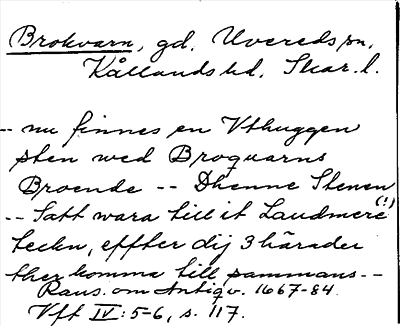 Brokvarn, gd, Uvereds sn,
Kållands hd, Skar. l.
-- nu finnes en Vthuggen
sten wed Broquarns
Broende -- Dhenne Stenen
-- Satt wara till it Landmere (!)
teckn, effter dij 3 härader
ther komma till sammans --
Rans. om Antiqv. 1667-84.
Vft IV: 5-6, s. 117.